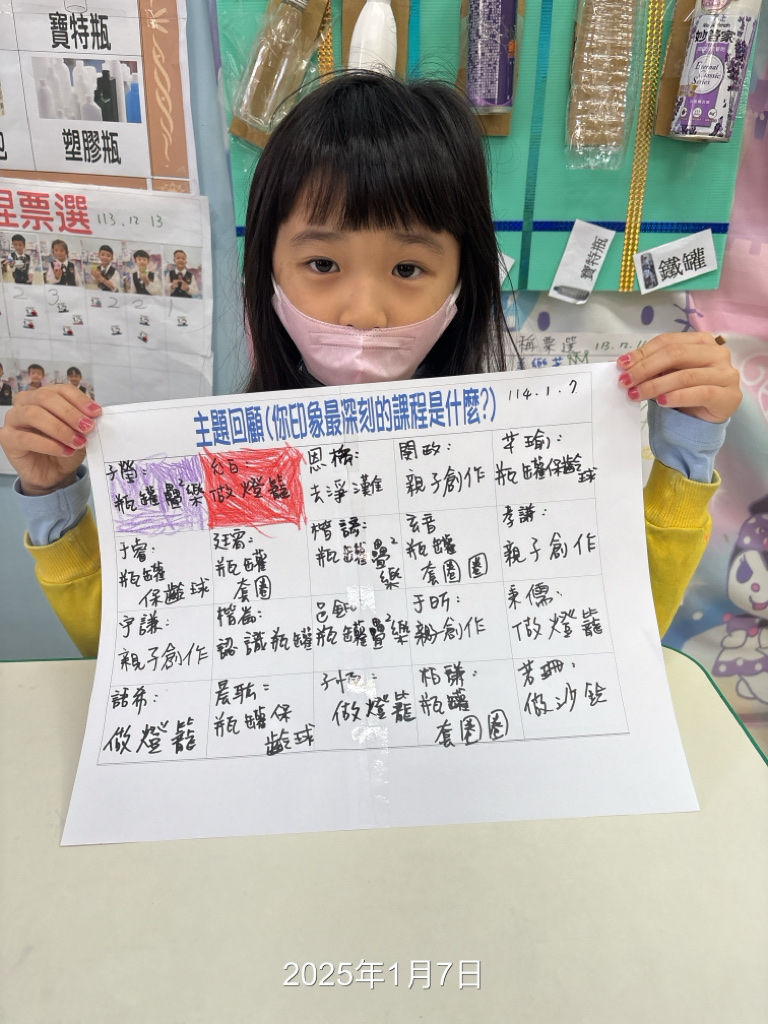 寶特瓶
塑膠瓶
票選 113.12.13
2 3 2 2 1
妙管家
Eternal
Classic
Series
寶特瓶
鐵罐
票選 113.12.11
主題回顧(你印象最深刻的課程是什麼?) 114.1.7
瓶罐疊²樂
做燈籠
恩楷:
去淨灘
閎政:
親子創作
芊瑜:
瓶罐保齡球
于睿:
瓶罐
保齡球
瓶罐
套圈
楷諺:
瓶罐疊²
樂
玄音
瓶罐
套圈圈
孝謙:
親子創作
宇謙:
親子創作
楷崙:
認識瓶罐
瓶罐疊²樂
于昕:
親子創作
秉儒:
做燈籠
語希:
做燈籠
晨耘:
瓶罐保
齡球
子恒:
做燈籠
柏謙:
瓶罐
套圈圈
若珊:
做沙鈴
2025年1月7日